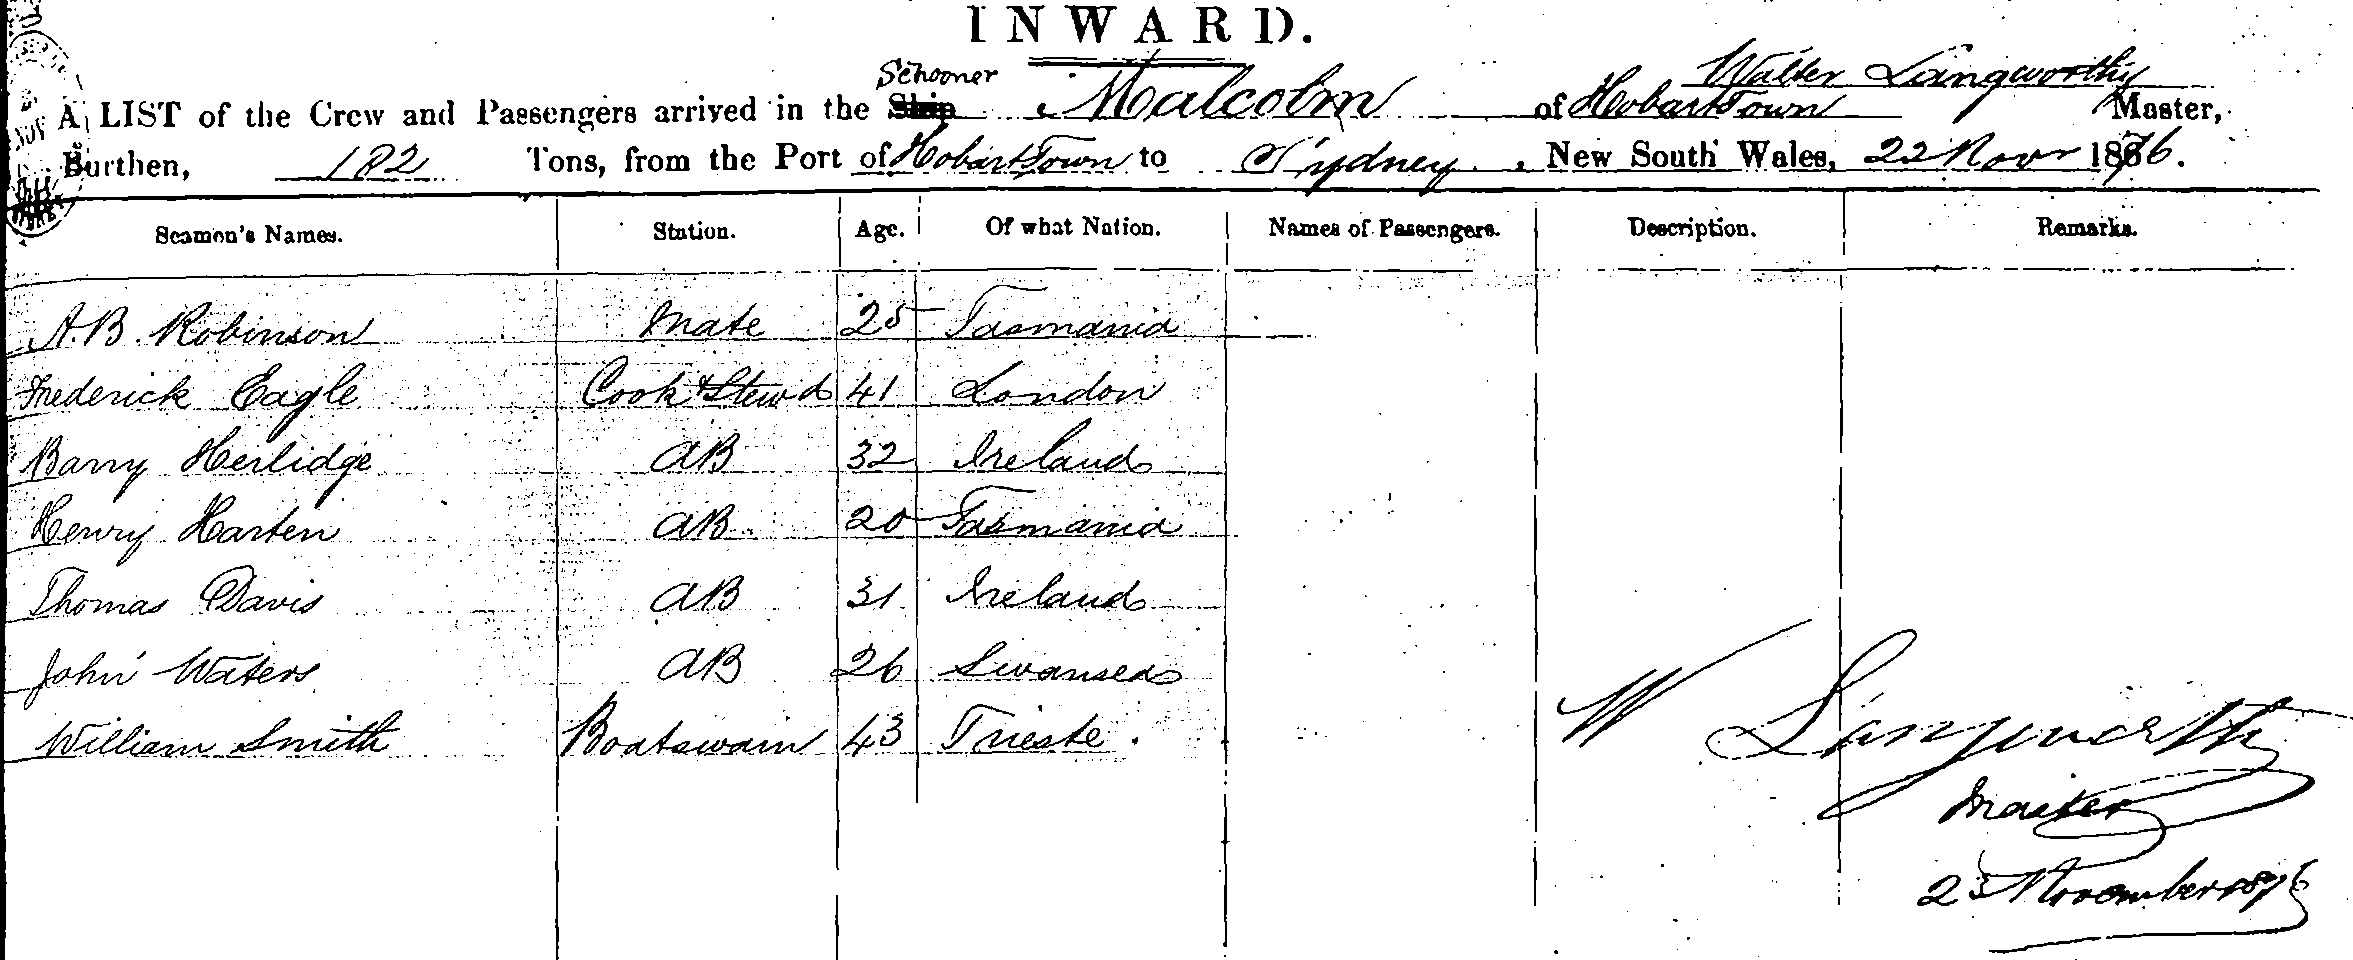 INWARD.
Schooner Walter Langworthy
A LIST of the Crew and Passengers arrived in the Ship Malcolm of Hobart Town Master,
Burthen, 182 Tons, from the Port of Hobart Town to Sydney, New South Wales, 22 Novr 1876.
Seamen's Names. Station. Age. Of what Nation. Names of Passengers. Description. Remarks.
A.B. Robinson Mate 25 Tasmania
Frederick Eagle Cook & Stewd 41 London
Barry Herlidge AB 32 Ireland
Henry Harten AB 20 Tasmania
Thomas Davis AB 31 Ireland
John Waters AB 26 Swansea
William Smith Boatswain 43 Trieste.
W Langworthy
Master
23 November 1876